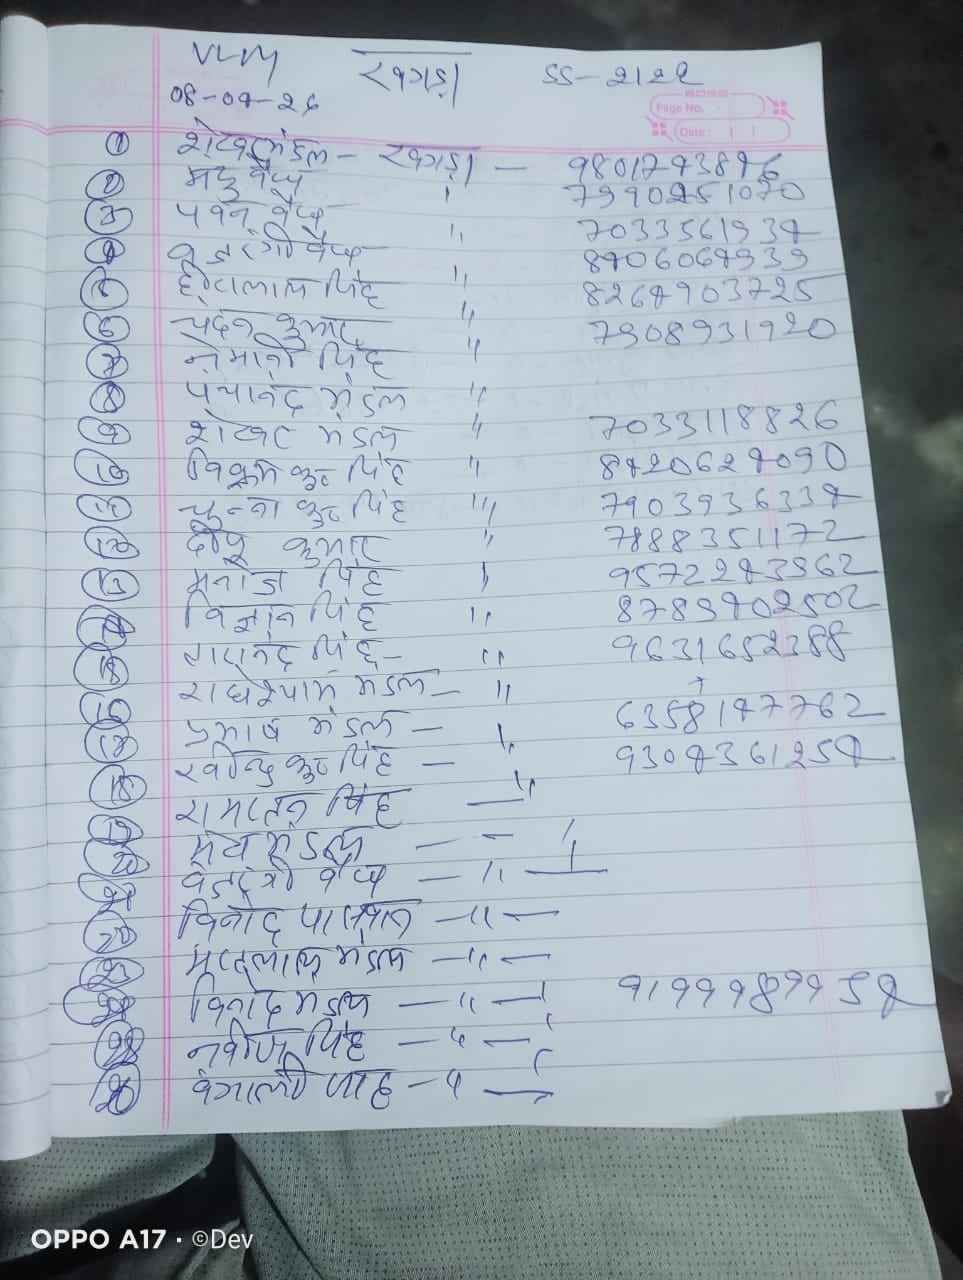 VLM रबगड़ा SS-2122
Page No.
08-04-26
Date:
1 शेखर मंडल - रबगड़ा - 9801743846
2 मदु वैध "
3 पवन वैध " 7033561934
4 बजरंगी वैध 8406064939
5 हीरालाल सिंह " 8264903725
6 चंदन कुमार " 7908931920
7 नेमानी सिंह "
8 पंचानंद मंडल "
9 शेखर मंडल " 7033118826
10 विक्रम कु० सिंह " 8420624090
11 चुन्ना कु० सिंह " 7903936334
12 दीपु कुमार " 7488351172
13 मनोज सिंह " 9572243562
14 सिंह " 8789402502
15 सिंह - " 9631652388
16 राधेश्याम मंडल - "
17 प्रभाष मंडल - " 6358147762
18 रविन्द्र कु० सिंह - " 9304361254
19 रामरतन सिंह - "
20 मंडल - -
21 बजरंगी वैध - " -
22 विनोद पासवान - " -
23 मंडल - " -
24 विनोद मंडल - " - 9199989954
25 सिंह - " -
26 बंगाली साह - " -
OPPO A17 · ©Dev